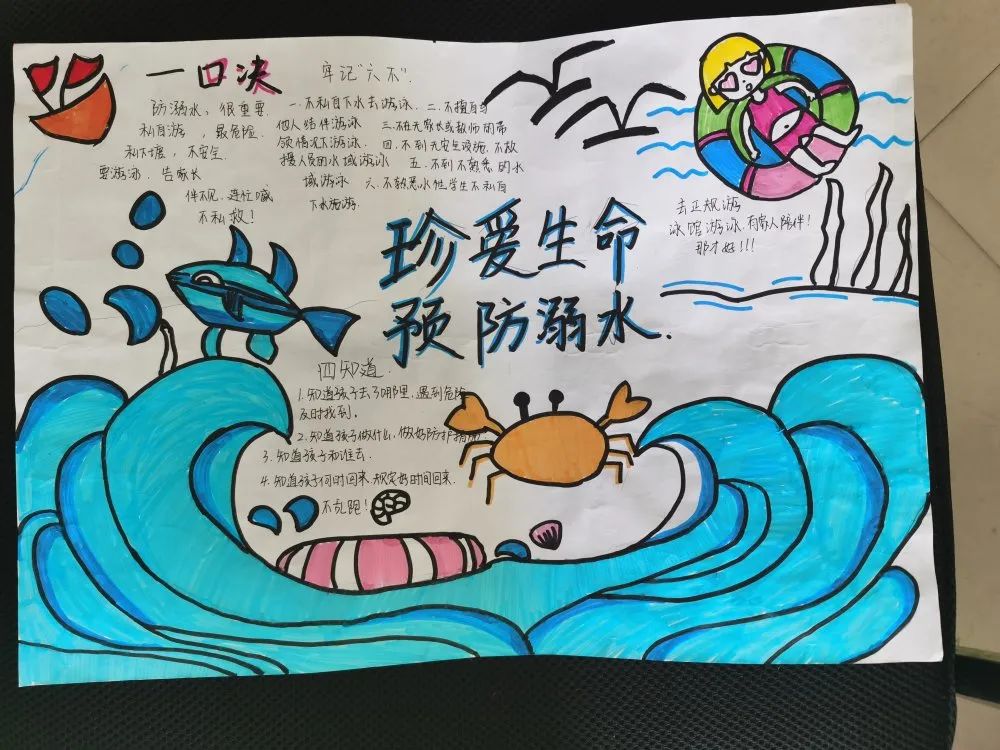 一口决
防溺水，很重要
私自游，最危险.
私下堰，不安全.
要游泳，告家长
伴不见，连忙喊
不私救！
牢记"六不".
一.不私自下水去游泳.二.不擅自与
他人结伴游泳 三.不在无家长或教师的带
领情况下游泳. 四.不到无安全设施、不救
援人员的水域游泳 五.不到不熟悉的水
域游泳 六.不熟悉水性学生不私自
下水施游.
去正规游
泳馆游泳.有家人陪伴！
那才好！！！
珍爱生命
预防溺水.
四知道.
1.知道孩子去了哪里，遇到危险
及时找到。
2.知道孩子做什么，做好防护措施.
3.知道孩子和谁去.
4.知道孩子何时回来.规定好时间回来.
不乱跑！